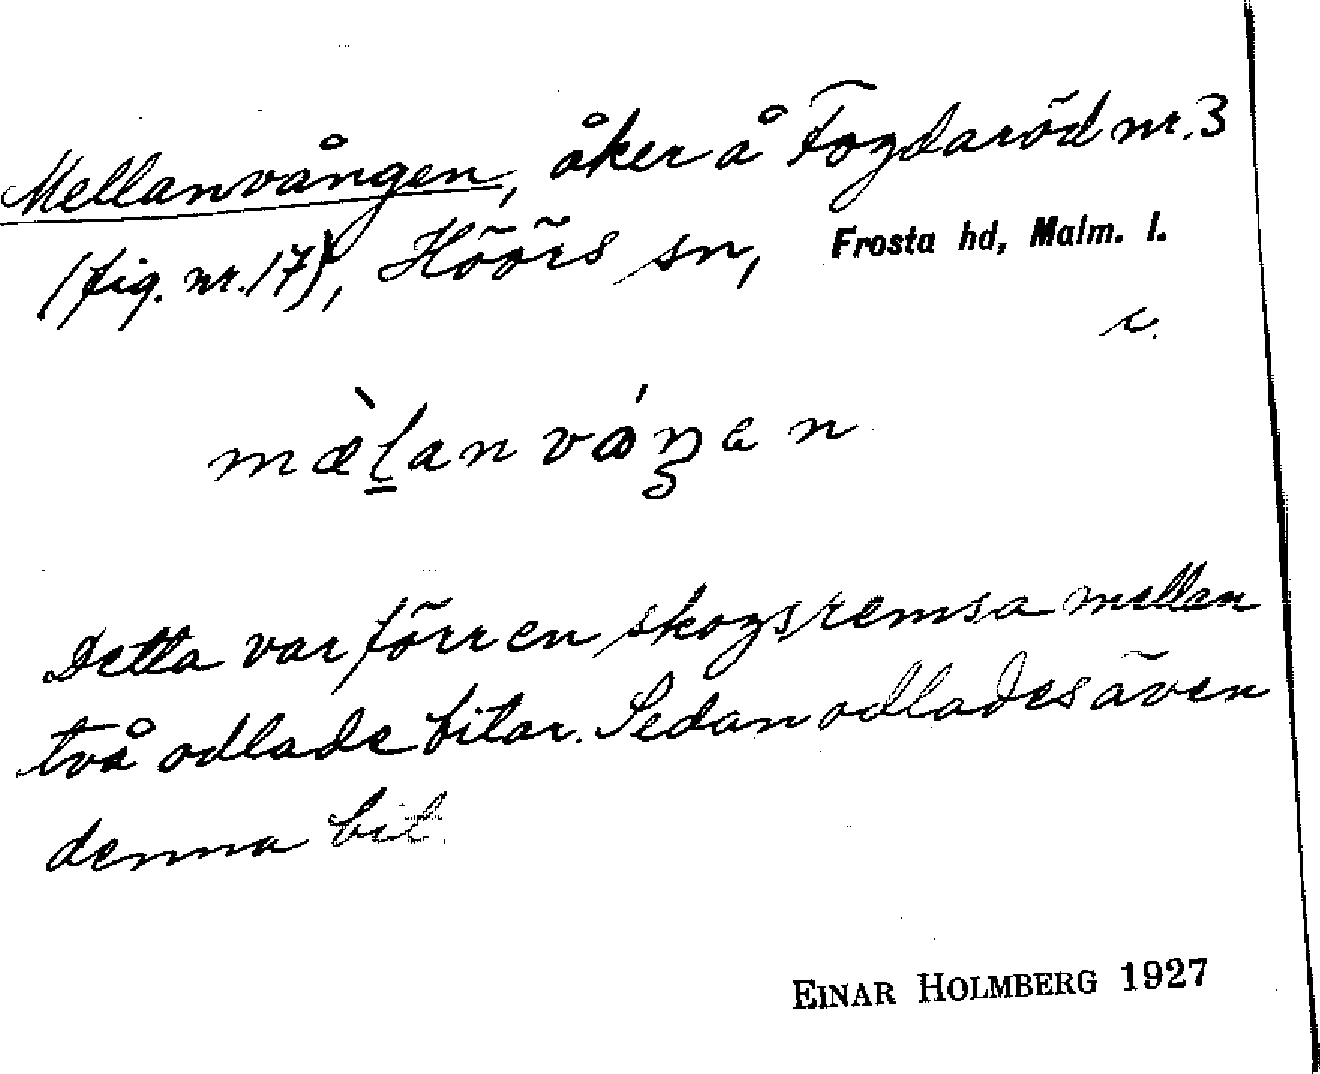 Mellanvången, åker å Fogdaröd nr. 3
(fig. nr. 17), Höörs sn, Frosta hd, Malm. l.
c.
mæ̀lanváŋen
Detta var förr en skogsremsa mellan
två odlade bitar. Sedan odlades även
denna bit.
EINAR HOLMBERG 1927